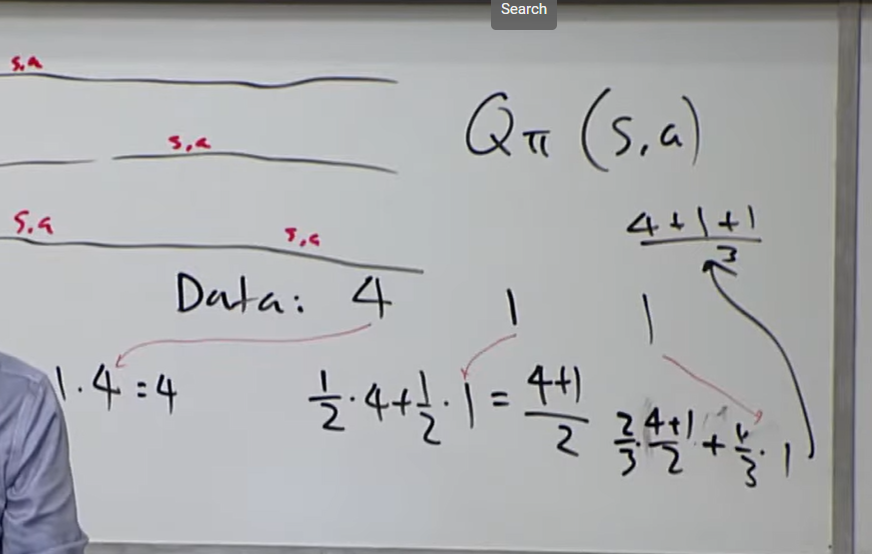 Search
s,a
s,a
s,a s,a
Qπ (s,a)
4+1+1
3
Data: 4 1 1
1·4=4
1/2·4+1/2·1=4+1/2
2/3·4+1/2+1/3·1